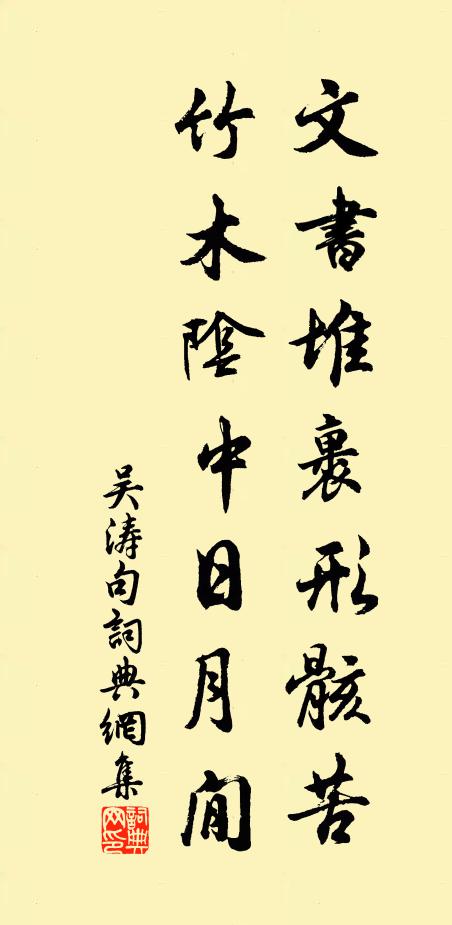 文書堆裏形骸苦
竹木陰中日月閒
吴涛句詞典網集
詞典網印